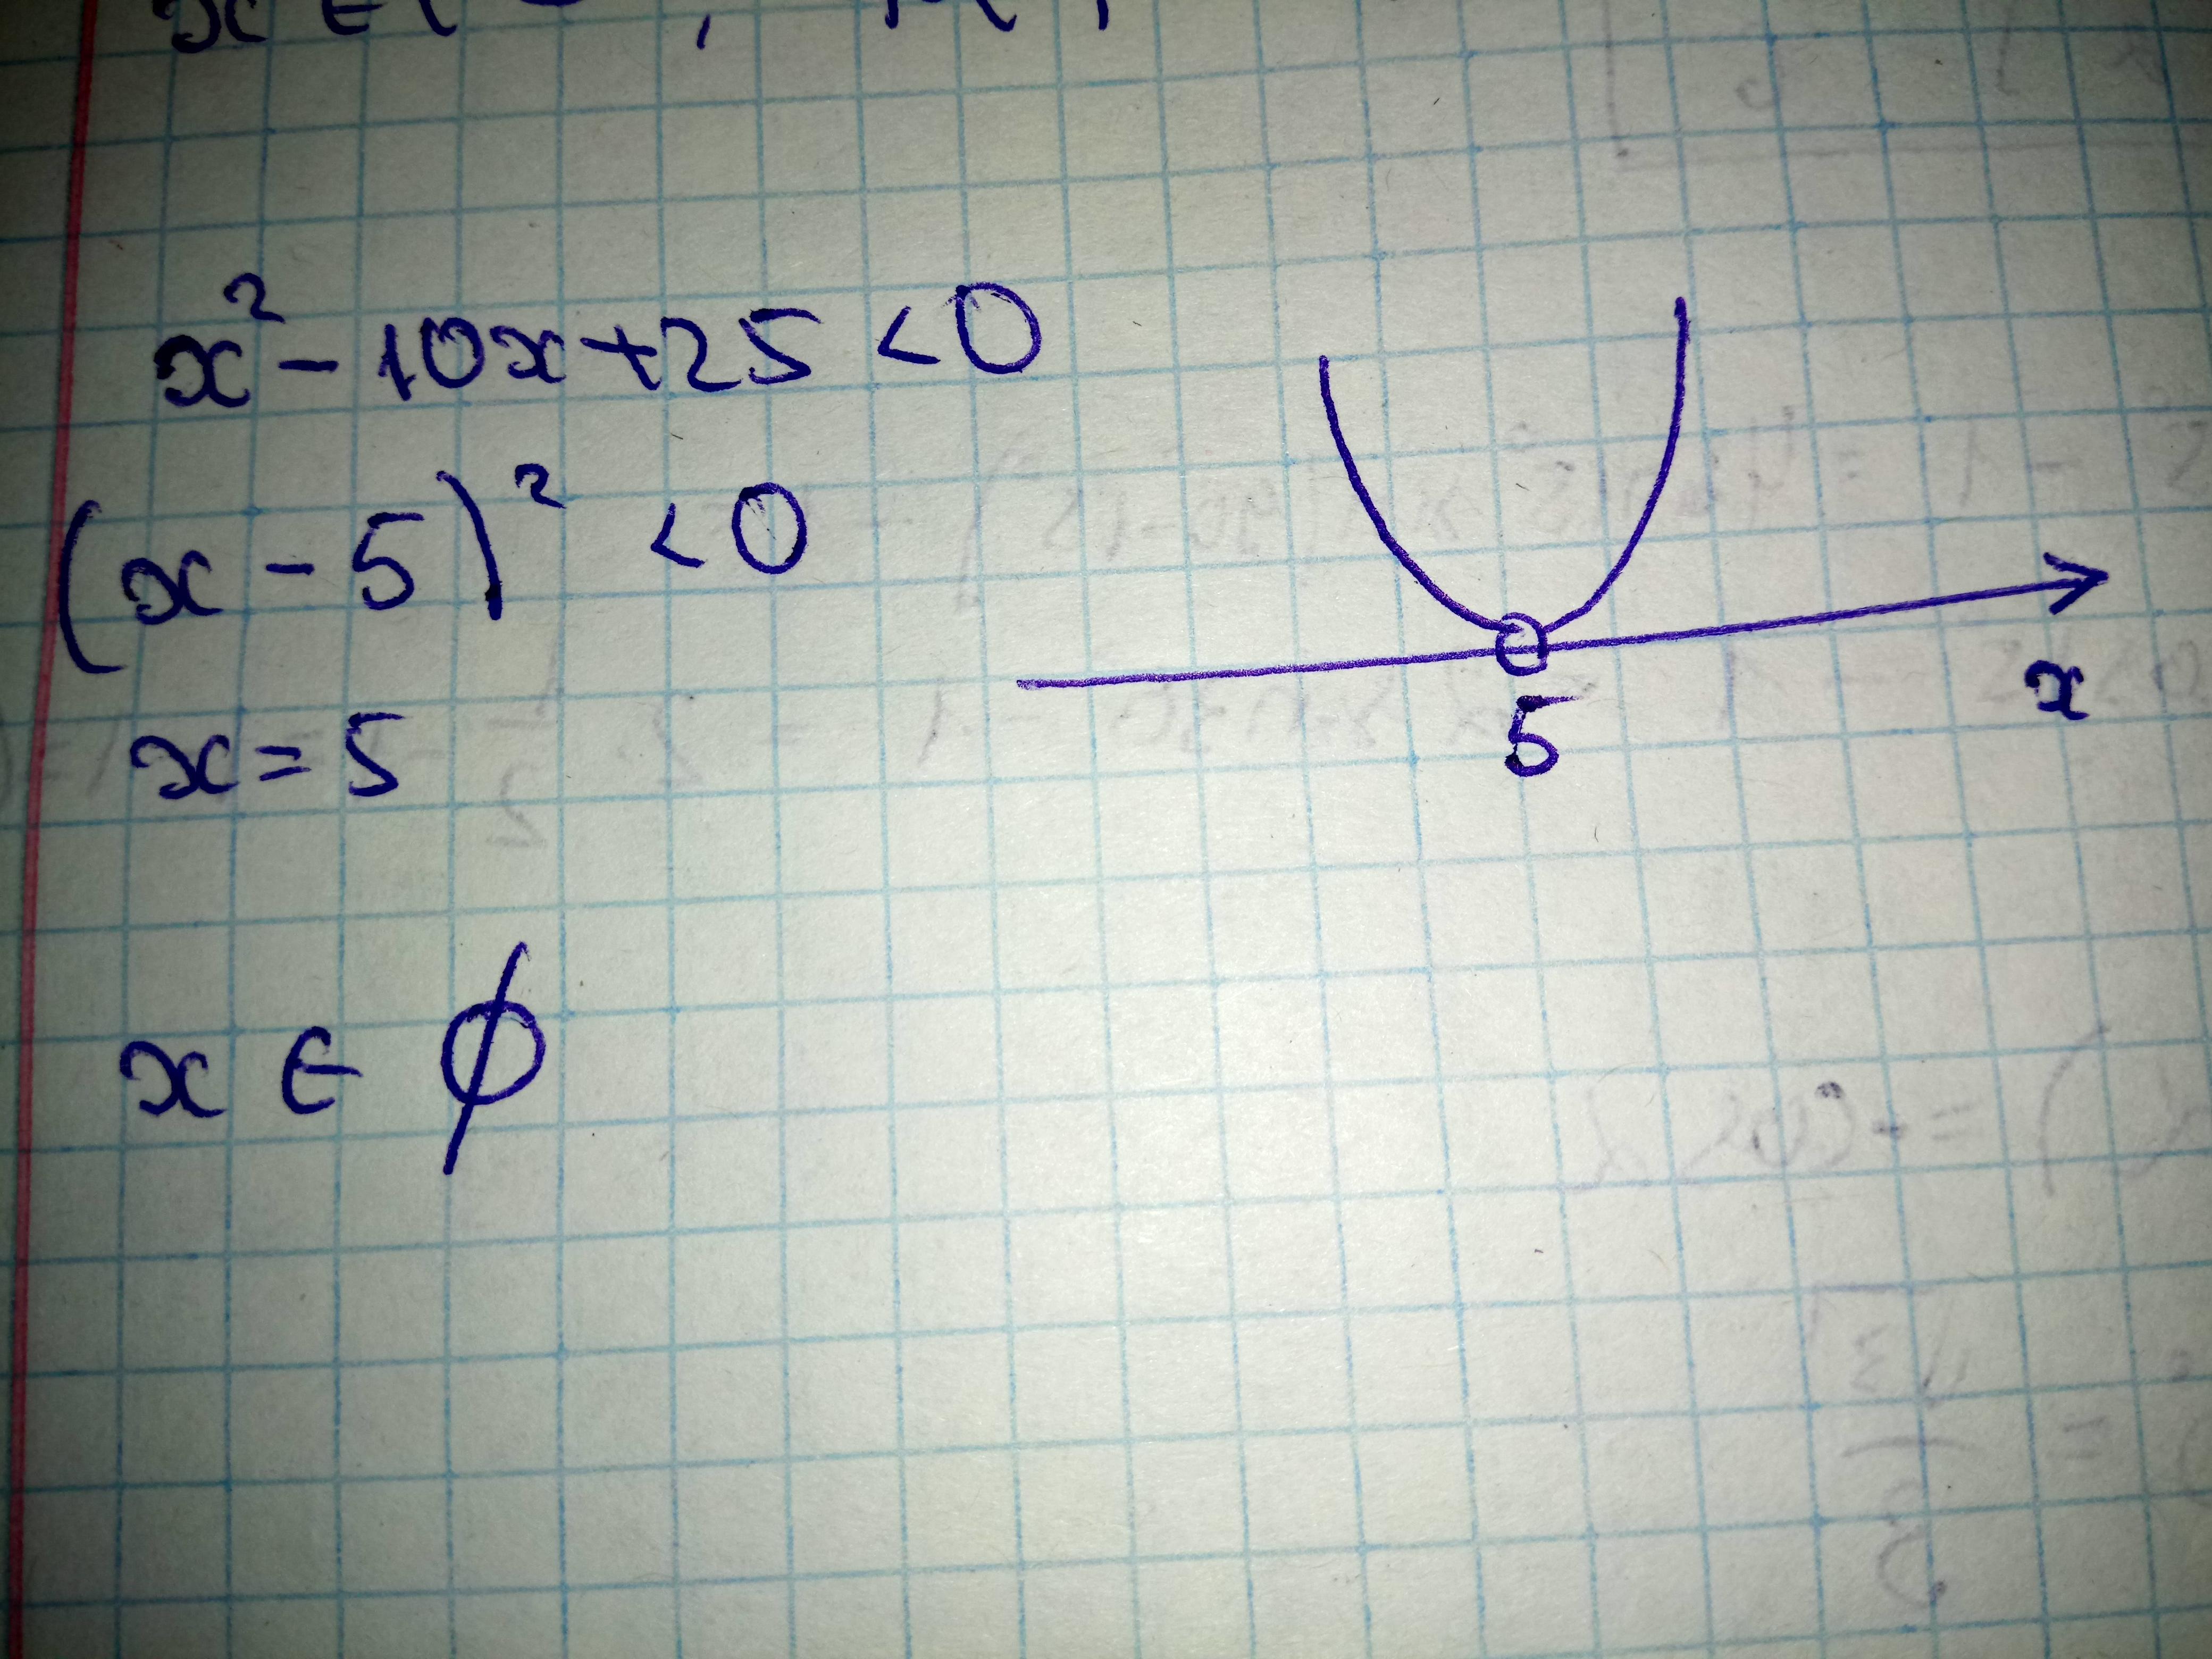 x² - 10x + 25 < 0
(x - 5)² < 0
x = 5
x ∈ ∅
5
x